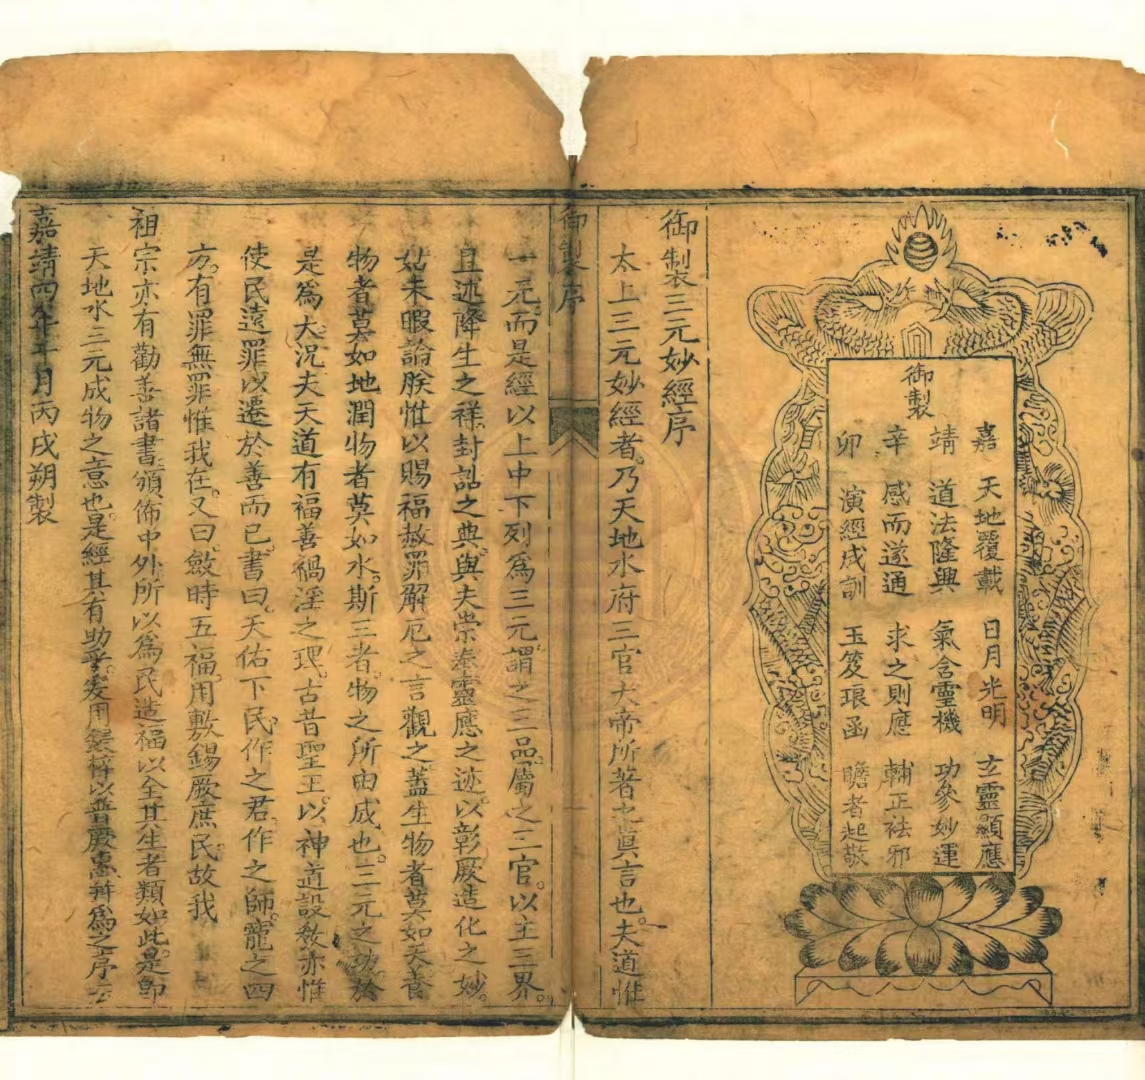 御製
嘉 天地覆載 日月光明 玄靈顯應
靖 道法隆興 氣含靈機 功參妙運
辛 感而遂通 求之則應 輔正祛邪
卯 演經成訓 玉笈琅函 瞻者起敬
御製三元妙經序
太上三元妙經者。乃天地水府三官大帝所著之真言也。夫道惟
御製序
一元。而是經以上中下列爲三元。謂之三品。屬之三官。以主三界。
且述降生之祥。封誥之典。與夫崇奉靈應之迹。以彰厥造化之妙。
姑未暇論。朕惟以賜福赦罪解厄之言觀之。蓋生物者莫如天。養
物者莫如地。潤物者莫如水。斯三者。物之所由成也。三元之功。於
是爲大。況夫天道有福善禍淫之理。古昔聖王。以神道設教。亦惟
使民遠罪以遷於善而已。書曰。天佑下民。作之君。作之師。寵之四
方。有罪無罪惟我在。又曰。斂時五福。用敷錫厥庶民。故我
祖宗亦有勸善諸書。頒佈中外。所以爲民造福以全其生者類如此。是卽
天地水三元成物之意也。是經其有助乎。爰用鋟梓以普厥惠。并爲之序云
嘉靖四年 月丙戌朔製